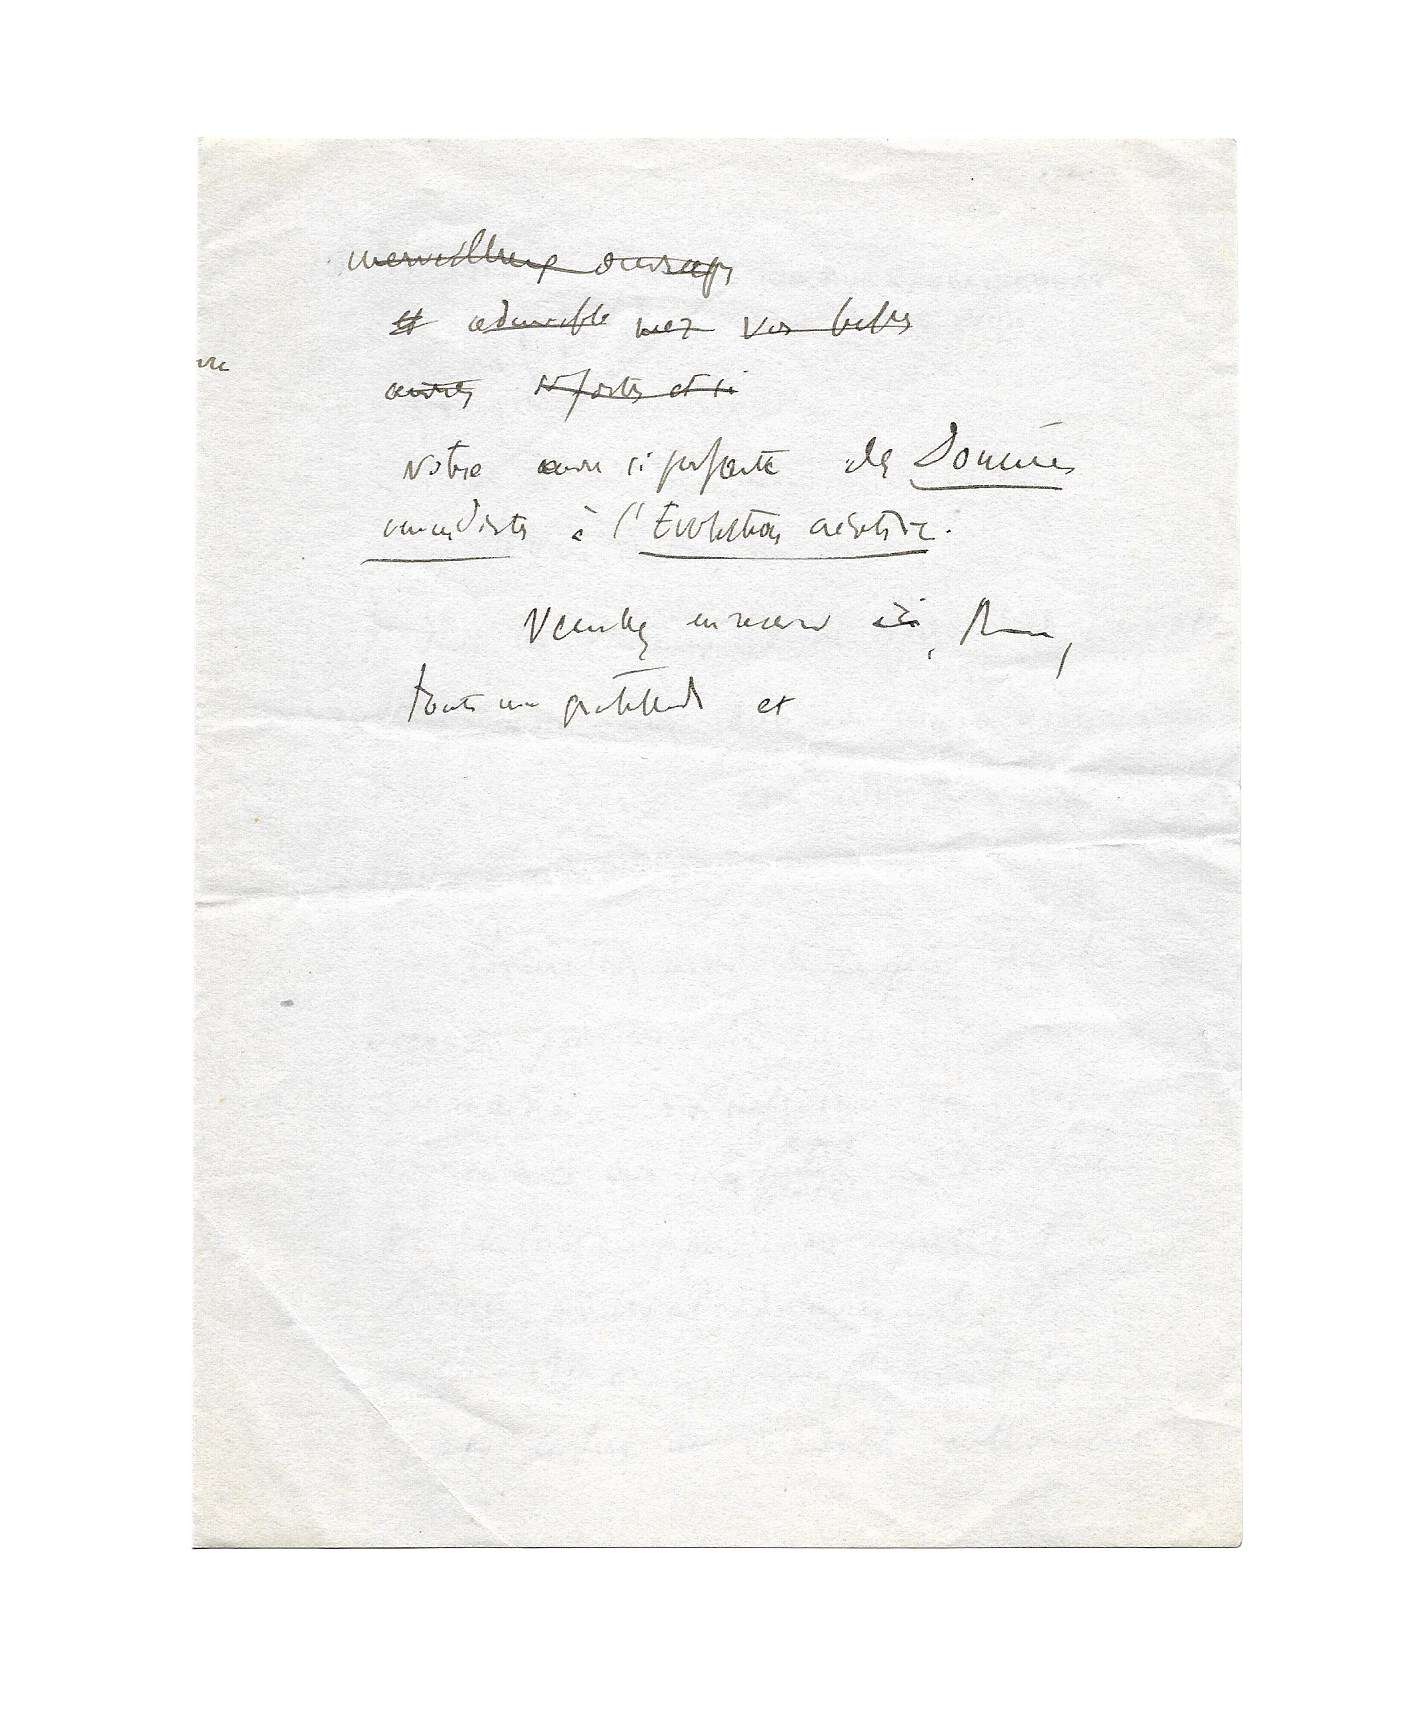 merveilleux ouvrages
et admirable vos belles
œuvres si fortes et si
Notre œuvre si parfaite des Données
immédiates à l'Evolution créatrice.
Veuillez en recevoir ici,
toute ma gratitude et